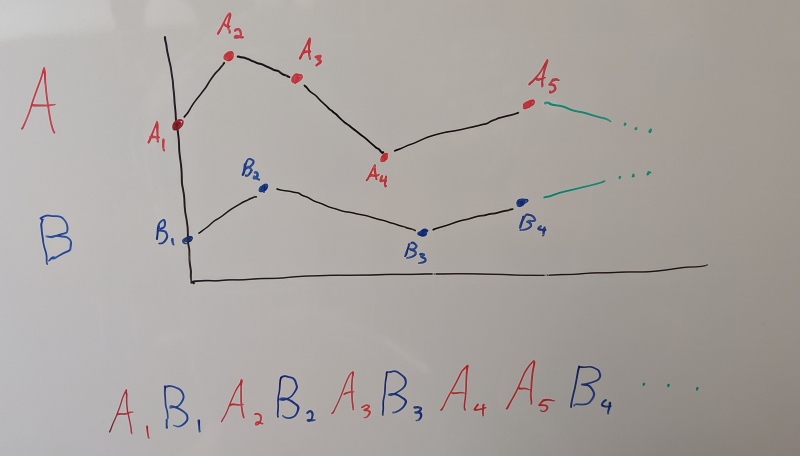 A
A₂
A₃
A₁
A₄
A₅
B
B₁
B₂
B₃
B₄
A₁ B₁ A₂ B₂ A₃ B₃ A₄ A₅ B₄ ....